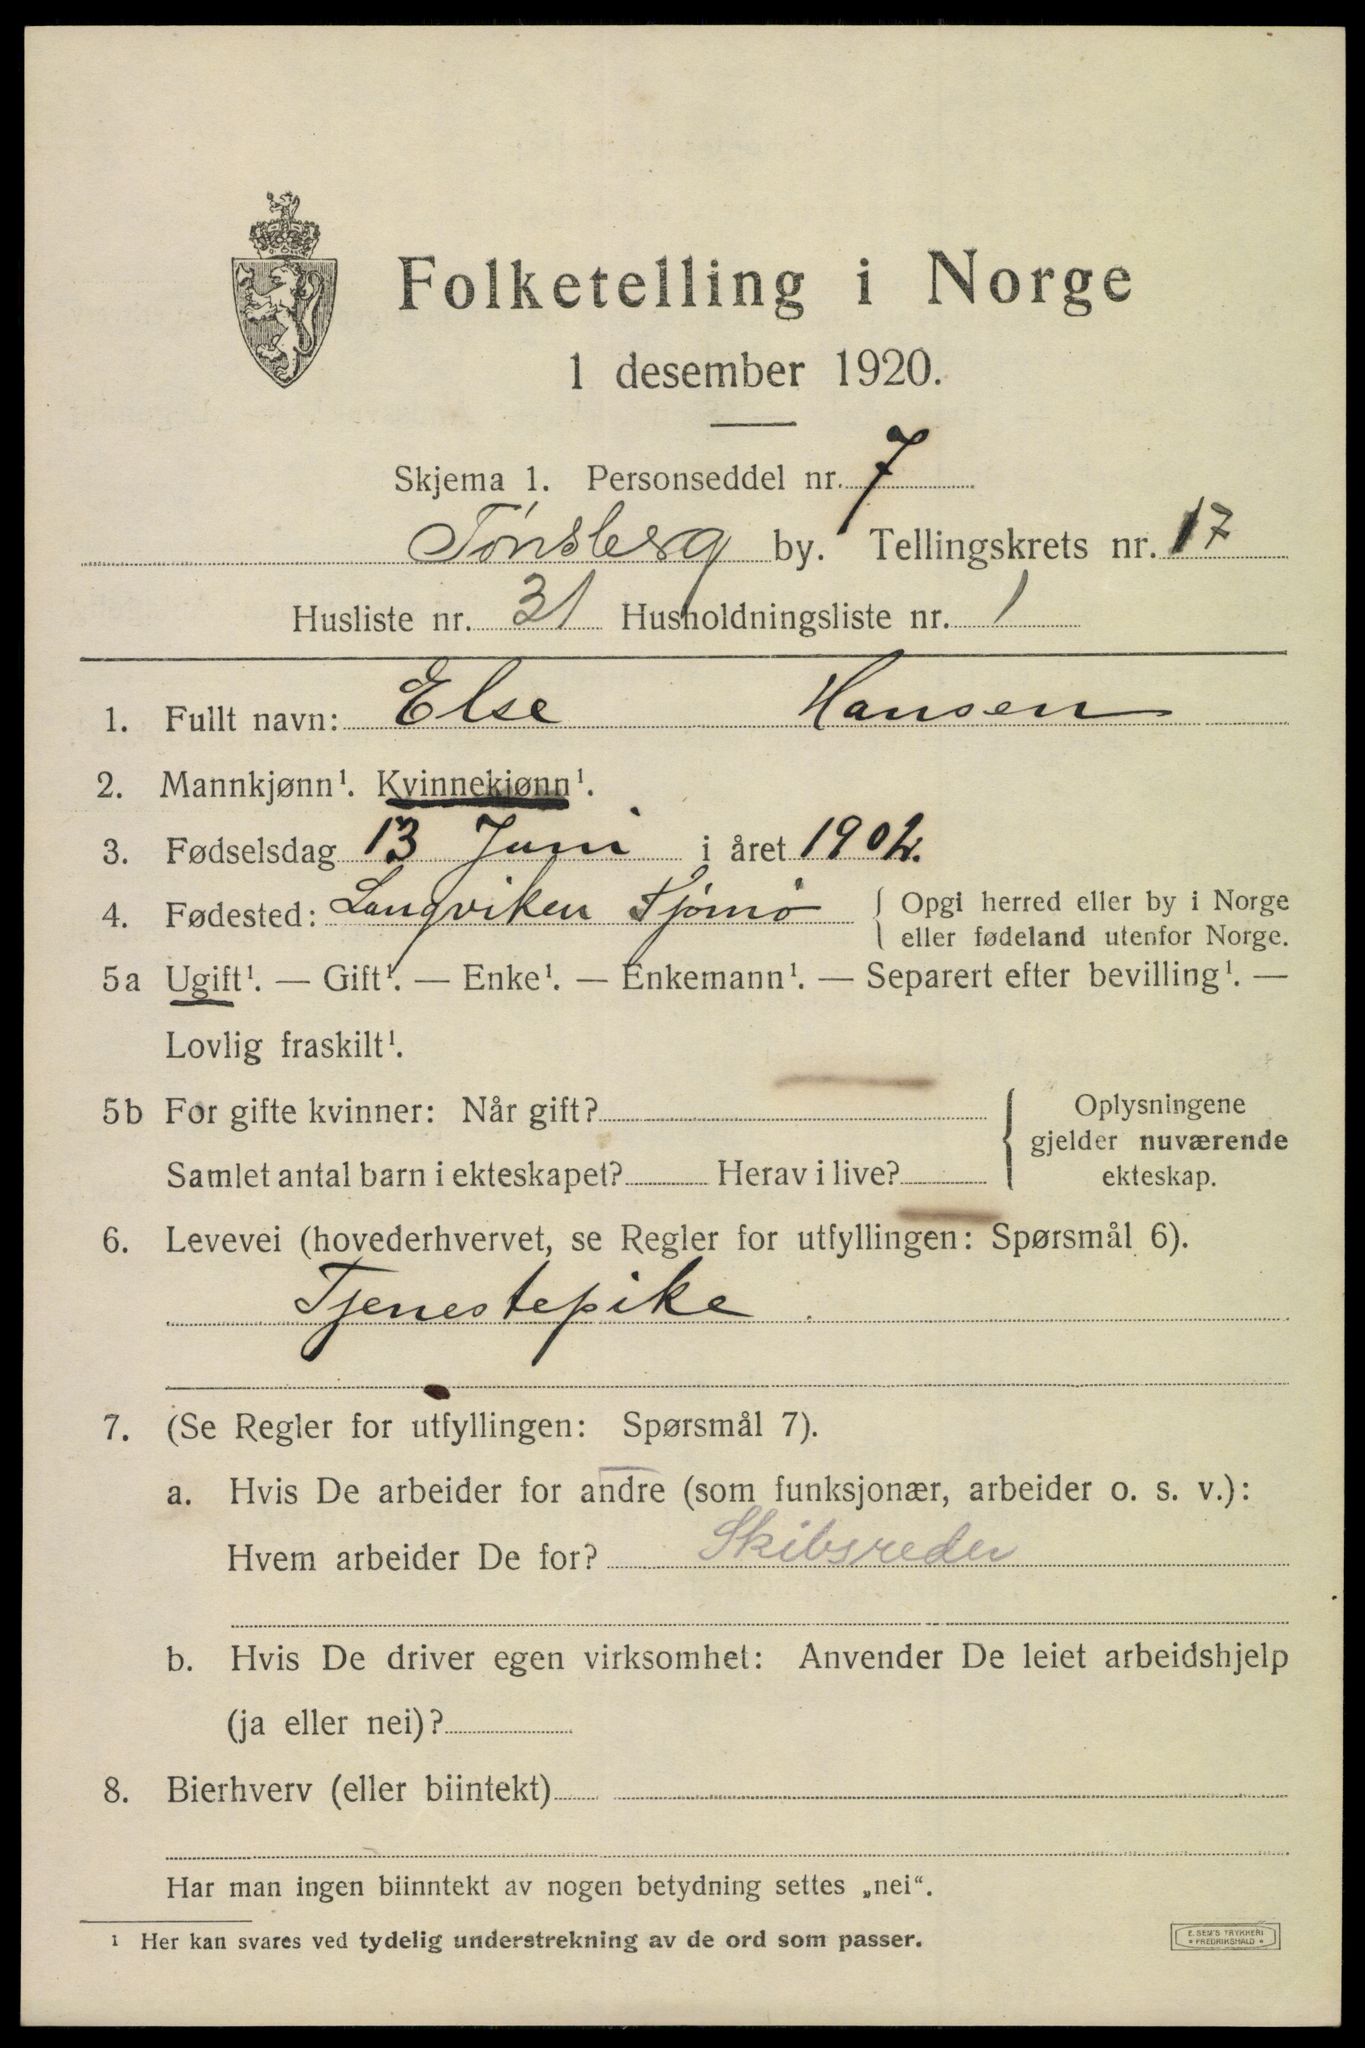 Folketelling i Norge
1 desember 1920.
Skjema 1. Personseddel nr. 7
Tønsberg by. Tellingskrets nr. 17
Husliste nr. 31 Husholdningsliste nr. 1
1. Fullt navn: Else Hansen
2. Mannkjønn¹. Kvinnekjønn¹.
3. Fødselsdag 13 Juni i året 1902.
4. Fødested: Langviken Tjømø { Opgi herred eller by i Norge
eller fødeland utenfor Norge.
5a Ugift¹. — Gift¹. — Enke¹. — Enkemann¹. — Separert efter bevilling¹. —
Lovlig fraskilt¹.
5b For gifte kvinner: Når gift? { Oplysningene
gjelder nuværende
Samlet antal barn i ekteskapet? Herav i live? ekteskap.
6. Levevei (hovederhvervet, se Regler for utfyllingen: Spørsmål 6).
Tjenestepike
7. (Se Regler for utfyllingen: Spørsmål 7).
a. Hvis De arbeider for andre (som funksjonær, arbeider o. s. v.):
Hvem arbeider De for? Skibsreder
b. Hvis De driver egen virksomhet: Anvender De leiet arbeidshjelp
(ja eller nei)?
8. Bierhverv (eller biintekt)
Har man ingen biinntekt av nogen betydning settes „nei“.
¹ Her kan svares ved tydelig understrekning av de ord som passer.
E. SEM'S TRYKKERI
* FREDRIKSHALD *